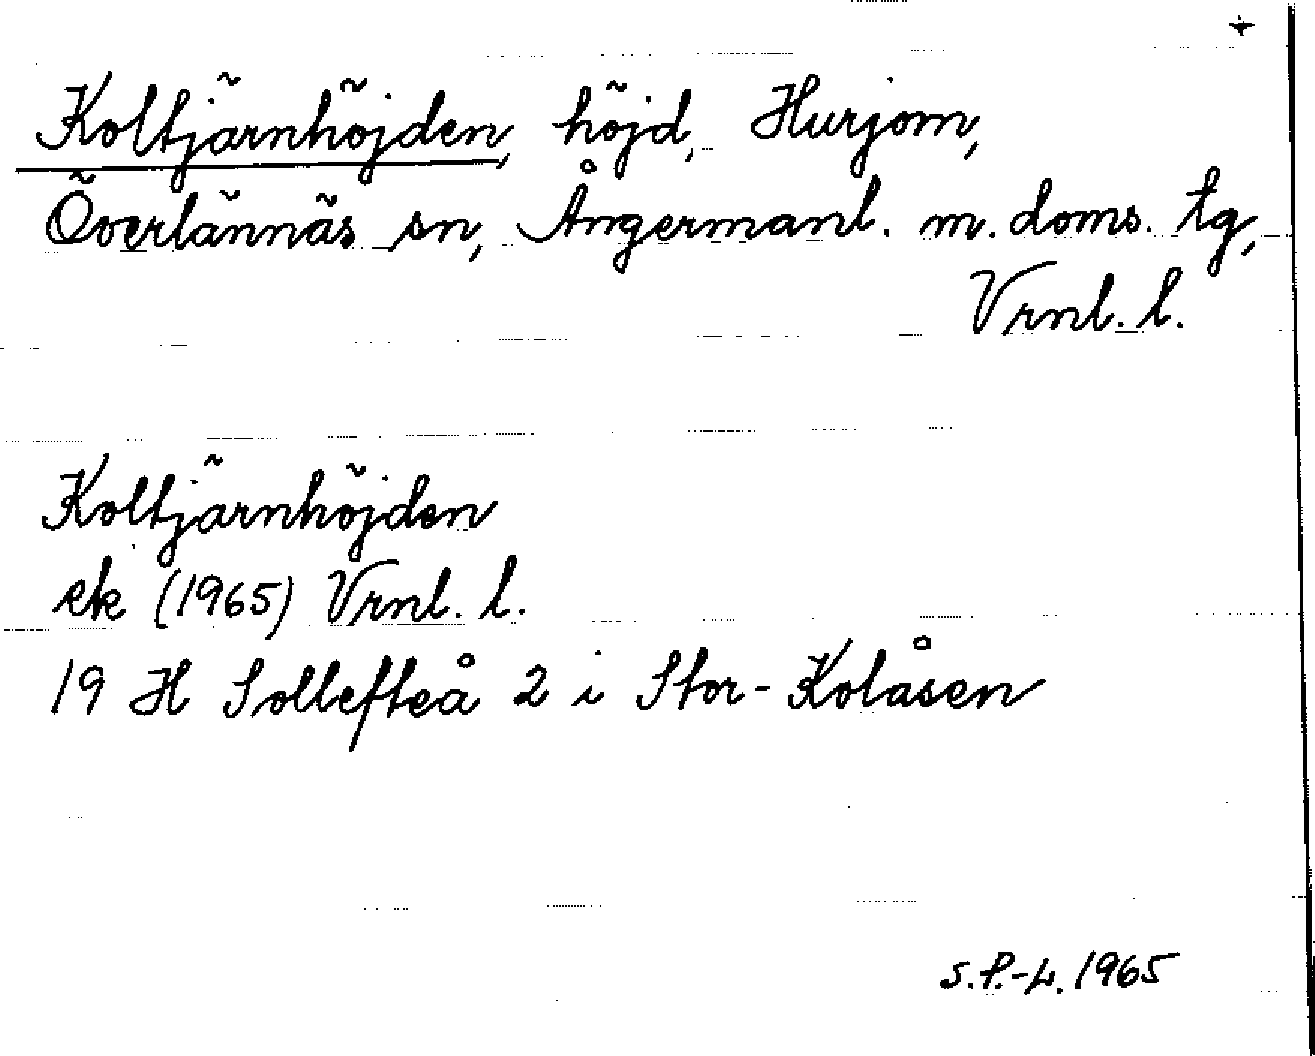 +
Koltjärnhöjden, höjd, Hurjom,
Överlännäs sn, Ångermanl. m. doms. tg,
Vrnl. l.
Koltjärnhöjden
ek (1965) Vrnl. l.
19 H Sollefteå 2 i Stor-Kolåsen
S.P.-L. 1965